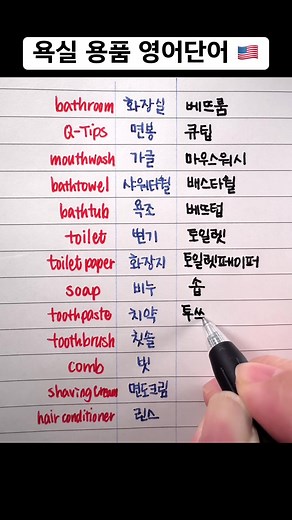 욕실 용품 영어단어 🇺🇸
bathroom 화장실 베쓰룸
Q-Tips 면봉 큐팁
mouthwash 가글 마우스워시
bathtowel 샤워타월 배스타월
bathtub 욕조 베쓰텁
toilet 변기 토일렛
toilet paper 화장지 토일렛페이퍼
soap 비누 솝
toothpaste 치약 투쓰
toothbrush 칫솔
comb 빗
shaving cream 면도크림
hair conditioner 린스